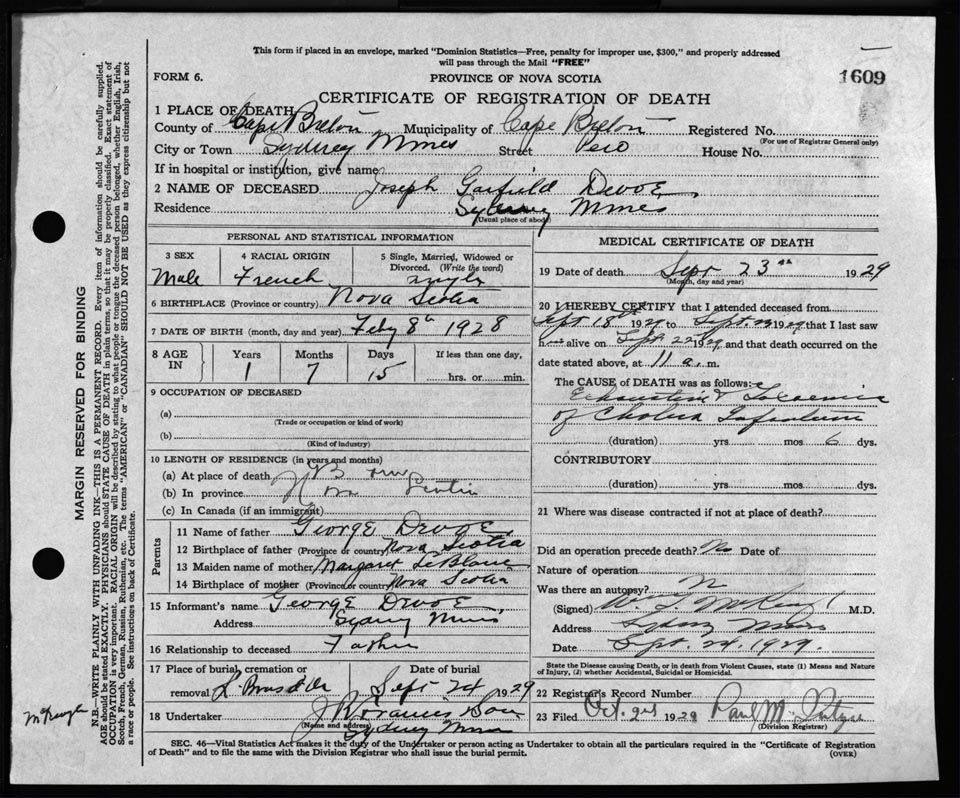 This form if placed in an envelope, marked "Dominion Statistics—Free, penalty for improper use, $300," and properly addressed
will pass through the Mail "FREE"
FORM 6.
PROVINCE OF NOVA SCOTIA
1609
CERTIFICATE OF REGISTRATION OF DEATH
1 PLACE OF DEATH
County of Cape Breton Municipality of Cape Breton Registered No.
(For use of Registrar General only)
City or Town Sydney Mines Street House No.
If in hospital or institution, give name
2 NAME OF DECEASED Joseph Garfield Devoe
Residence Sydney Mines
(Usual place of abode)
PERSONAL AND STATISTICAL INFORMATION
3 SEX
Male
4 RACIAL ORIGIN
French
5 Single, Married, Widowed or
Divorced. (Write the word)
single
6 BIRTHPLACE (Province or country) Nova Scotia
7 DATE OF BIRTH (month, day and year) Feby 8th 1928
8 AGE
IN
Years
1
Months
7
Days
15
If less than one day,
hrs. or min.
9 OCCUPATION OF DECEASED
(a)
(Trade or occupation or kind of work)
(b)
(Kind of industry)
10 LENGTH OF RESIDENCE (in years and months)
(a) At place of death
(b) In province Nova Scotia
(c) In Canada (if an immigrant)
Parents
11 Name of father George Devoe
12 Birthplace of father (Province or country) Nova Scotia
13 Maiden name of mother Margaret LeBlanc
14 Birthplace of mother (Province or country) Nova Scotia
15 Informant's name George Devoe
Address Sydney Mines
16 Relationship to deceased Father
17 Place of burial, cremation or
removal L. Bras d'Or
Date of burial
Sept 24 1929
18 Undertaker
(Name and address)
Sydney Mines
MEDICAL CERTIFICATE OF DEATH
19 Date of death Sept 23rd 1929
(Month, day and year)
20 I HEREBY CERTIFY that I attended deceased from
Sept 18th 1929 to Sept. 23 1929 that I last saw
him alive on Sept 22 1929 and that death occurred on the
date stated above, at 11 a. m.
The CAUSE of DEATH was as follows:
Exhaustion & Toxaemia
of Cholera Infantum
(duration) yrs mos 6 dys.
CONTRIBUTORY
(duration) yrs mos dys.
21 Where was disease contracted if not at place of death?
Did an operation precede death? No Date of
Nature of operation
Was there an autopsy? N
(Signed) M.D.
Address Sydney Mines
Date Sept. 24. 1929.
State the Disease causing Death, or in death from Violent Causes, state (1) Means and Nature
of Injury, (2) whether Accidental, Suicidal or Homicidal.
22 Registrar's Record Number
23 Filed Oct. 2nd 1929 Paul
(Division Registrar)
SEC. 46—Vital Statistics Act makes it the duty of the Undertaker or person acting as Undertaker to obtain all the particulars required in the "Certificate of Registration
of Death" and to file the same with the Division Registrar who shall issue the burial permit.
(OVER)
MARGIN RESERVED FOR BINDING
N.B.—WRITE PLAINLY WITH UNFADING INK—THIS IS A PERMANENT RECORD. Every item of information should be carefully supplied.
AGE should be stated EXACTLY. PHYSICIANS should STATE CAUSE OF DEATH in plain terms, so that it may be properly classified. Exact statement of
OCCUPATION is very important. RACIAL ORIGIN will be described by stating to what people or tongue the deceased person belonged, whether English, Irish,
Scotch, French, German, Russian, Ruthenian, etc. The terms "AMERICAN" or "CANADIAN" SHOULD NOT BE USED as they express citizenship but not
a race or people. See instructions on back of Certificate.